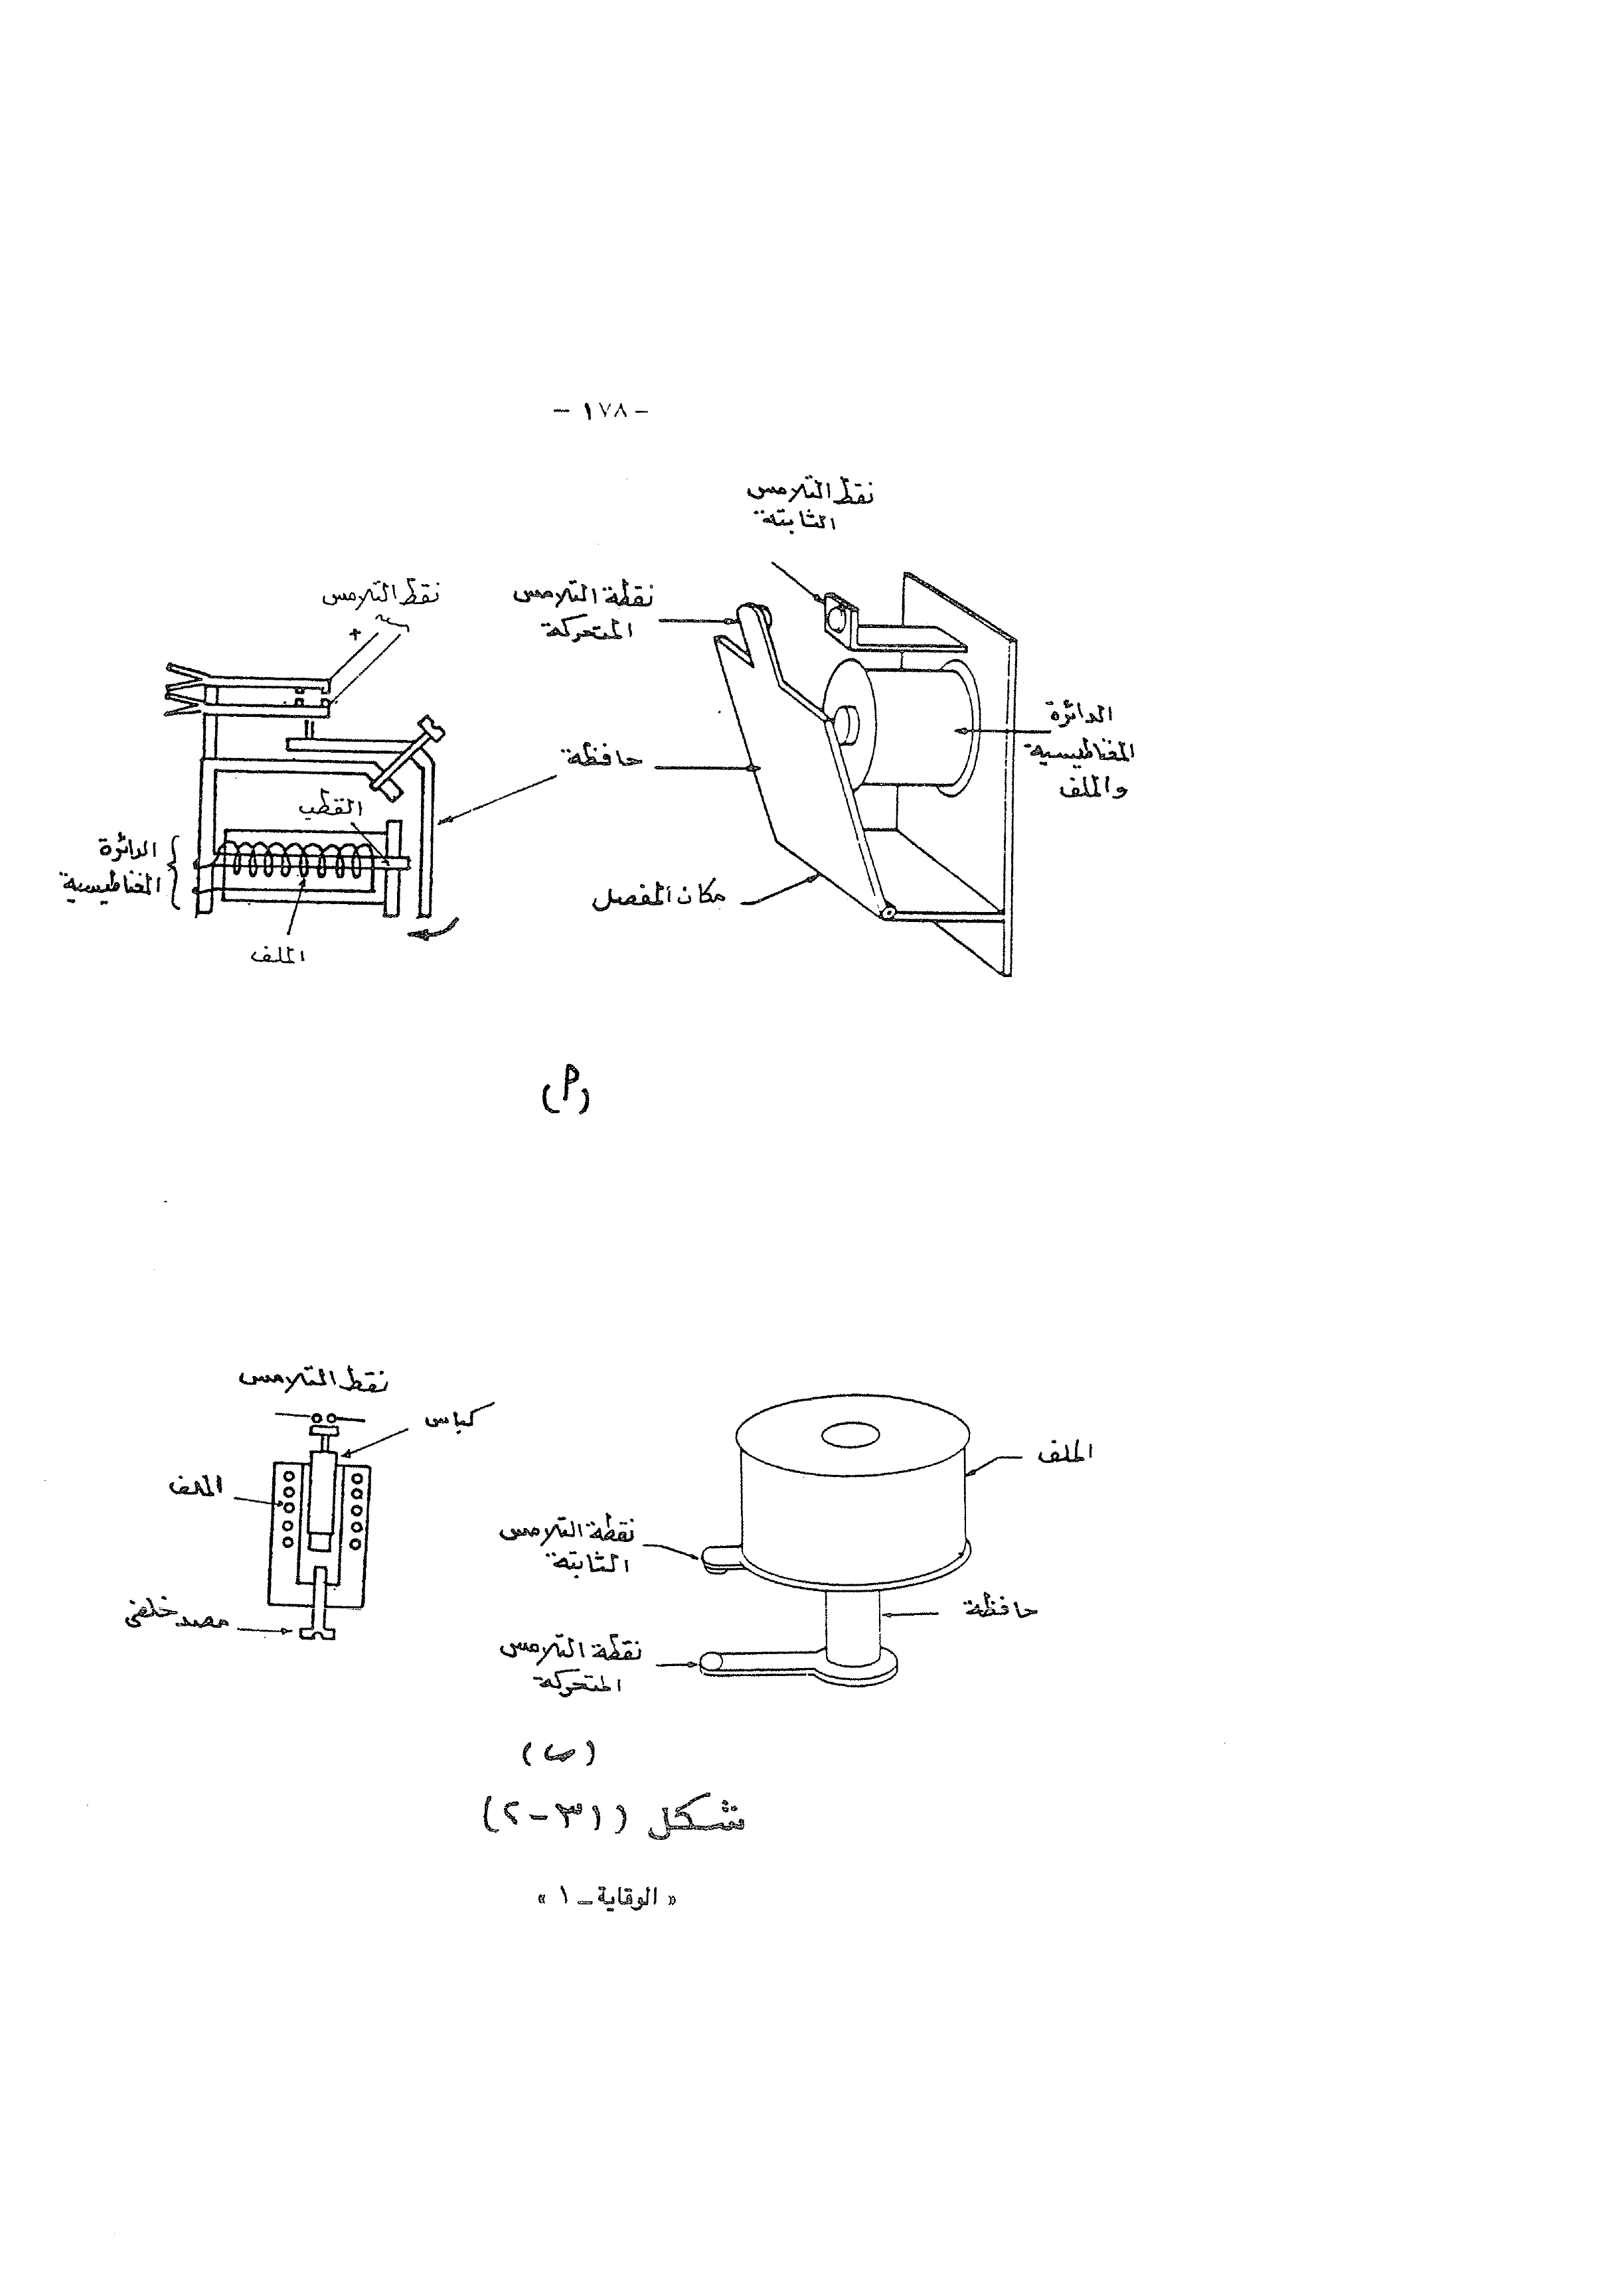 - ١٧٨ -
نقط التلامس
الثابتة
نقطة التلامس
المتحركة
نقط التلامس
+
الدائرة
المغناطيسية
والملف
حافظة
القطب
الدائرة
المغناطيسية
مكان المفصل
الملف
(أ)
نقط التلامس
كباس
الملف
الملف
نقطة التلامس
الثابتة
حافظة
مصد خلفى
نقطة التلامس
المتحركة
(ب)
شكل (٣١-٢)
« الوقاية - ١ »